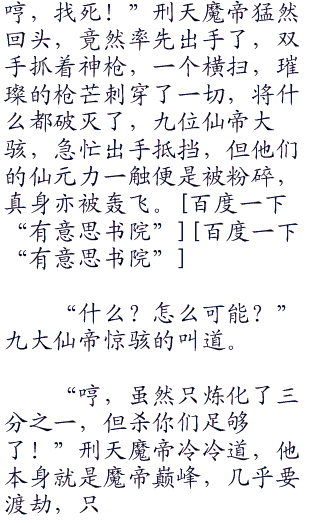 哼，找死！”刑天魔帝猛然
回头，竟然率先出手了，双
手抓着神枪，一个横扫，璀
璨的枪芒刺穿了一切，将什
么都破灭了，九位仙帝大
骇，急忙出手抵挡，但他们
的仙元力一触便是被粉碎，
真身亦被轰飞。[百度一下
“有意思书院”][百度一下
“有意思书院”]
“什么？怎么可能？”
九大仙帝惊骇的叫道。
“哼，虽然只炼化了三
分之一，但杀你们足够
了！”刑天魔帝冷冷道，他
本身就是魔帝巅峰，几乎要
渡劫，只